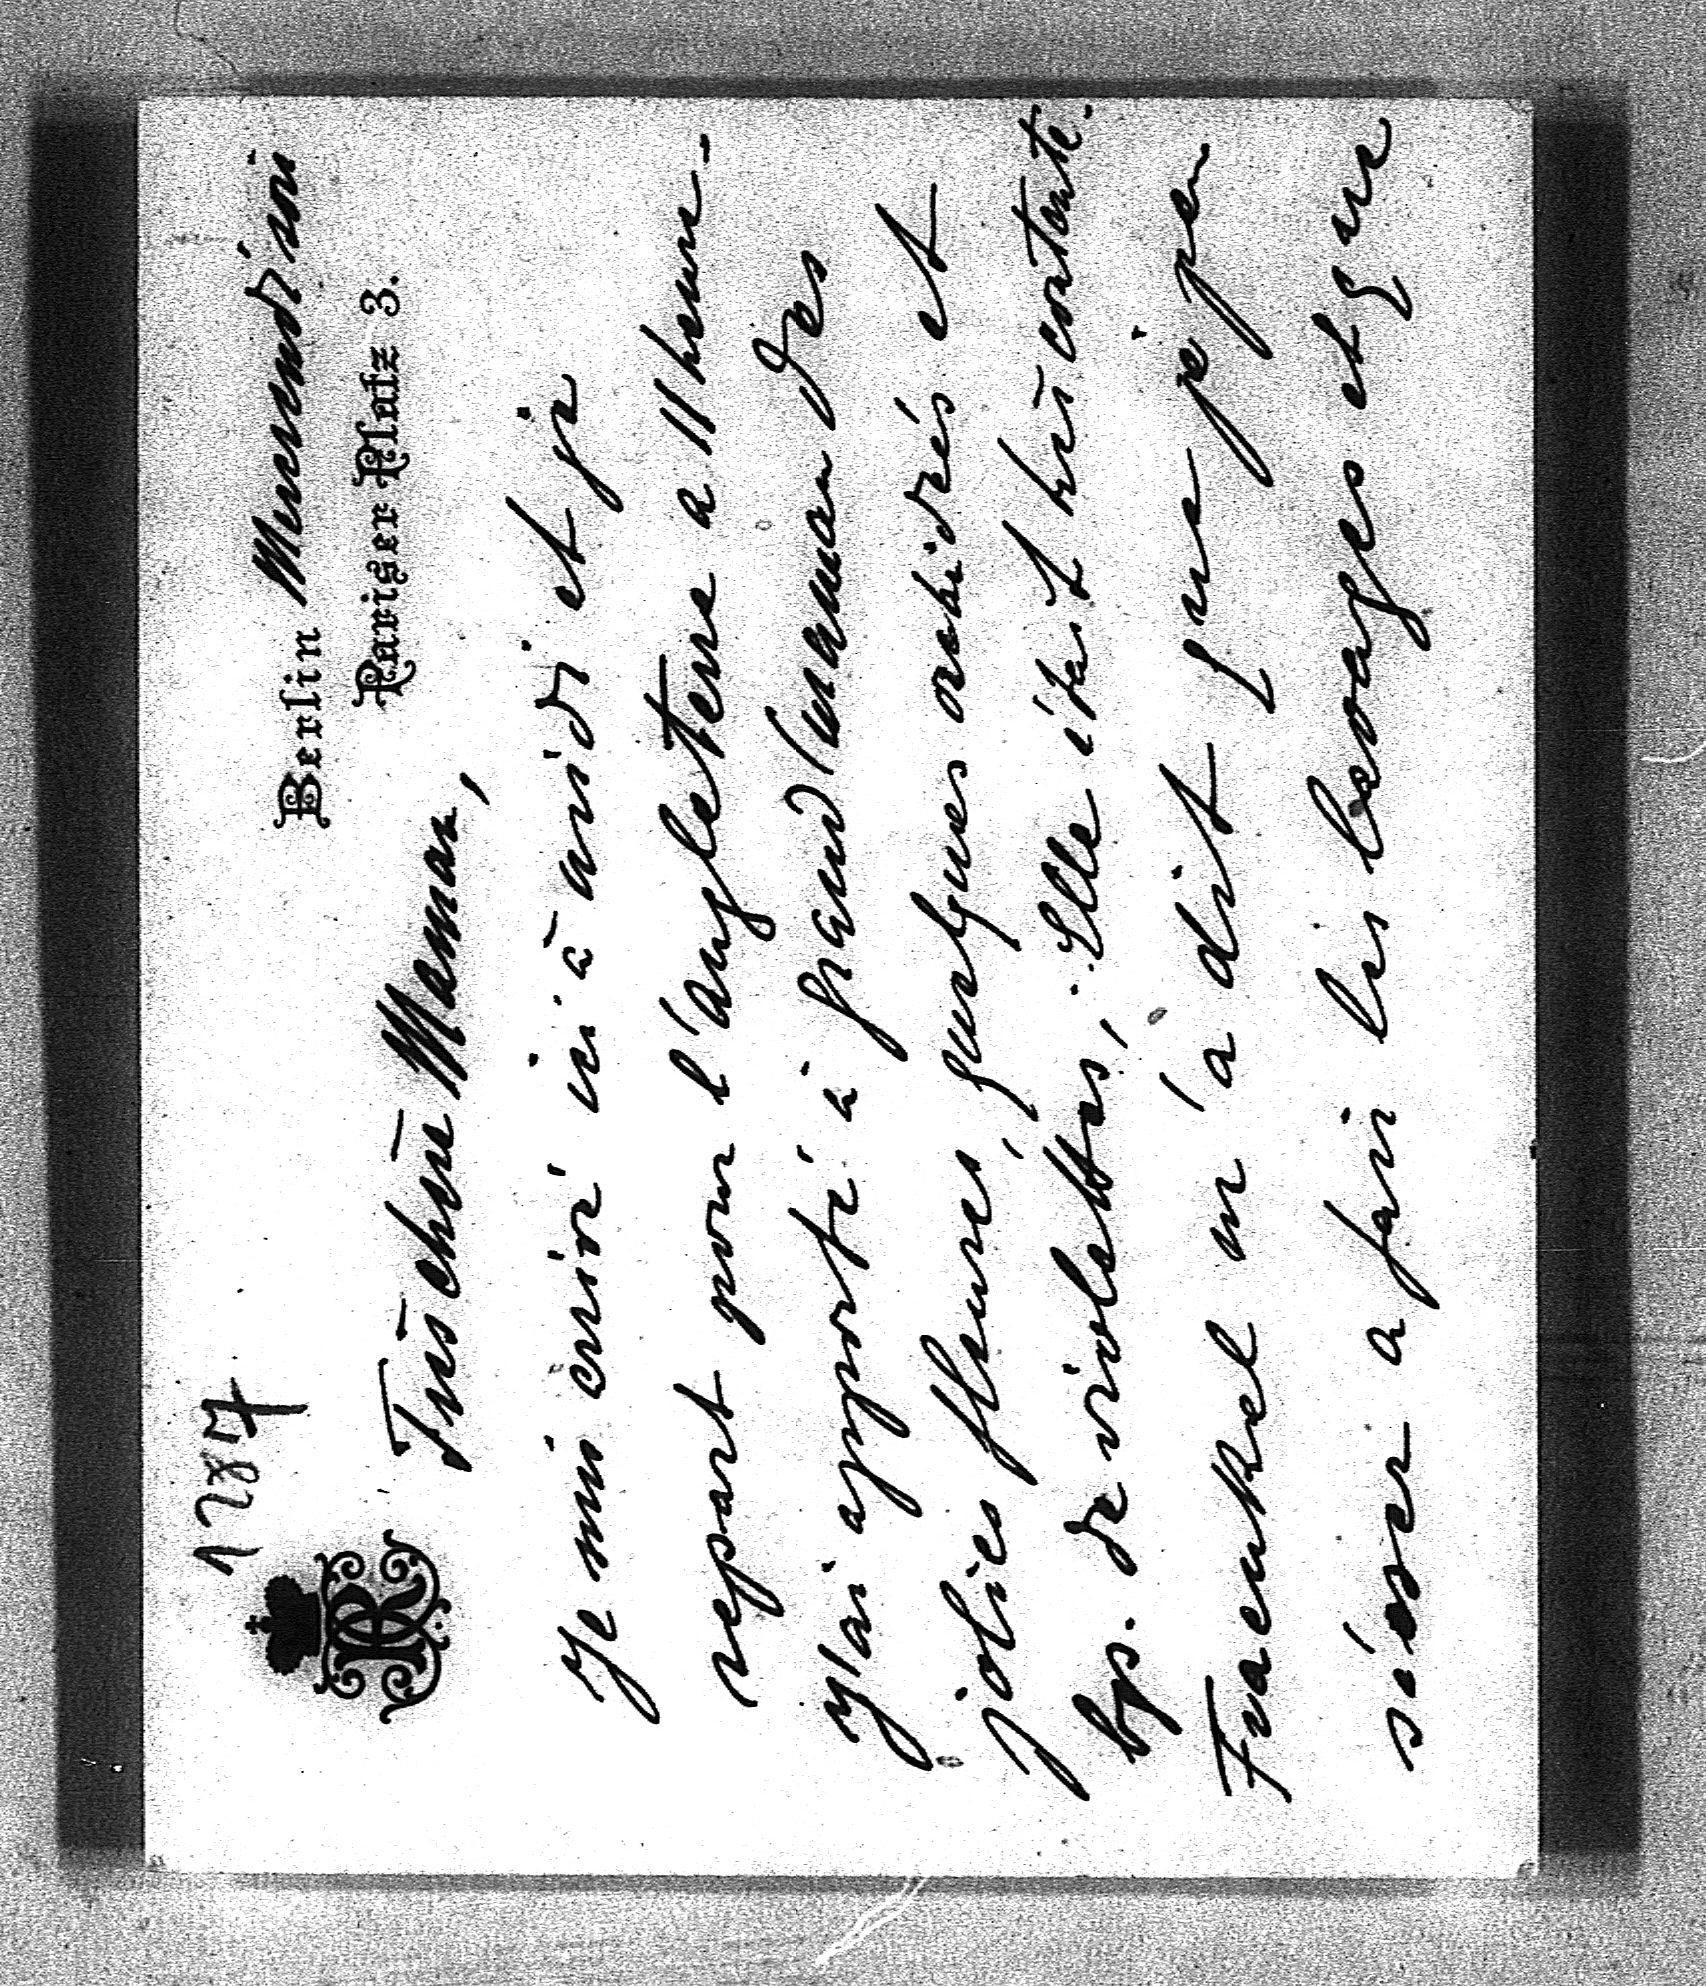 1287
Berlin
Pariser Platz 3.
Très chère Maman,
Je suis arrivé ici à midi et je
repart pour l'angleterre a 11 heure-
J'ai apporté à grand'maman des
jolies fleures, quelques orchideés et
bp. de violettes, Elle était très contente.
Fraenkel m'a dit que je pen
sérer a fair les et que